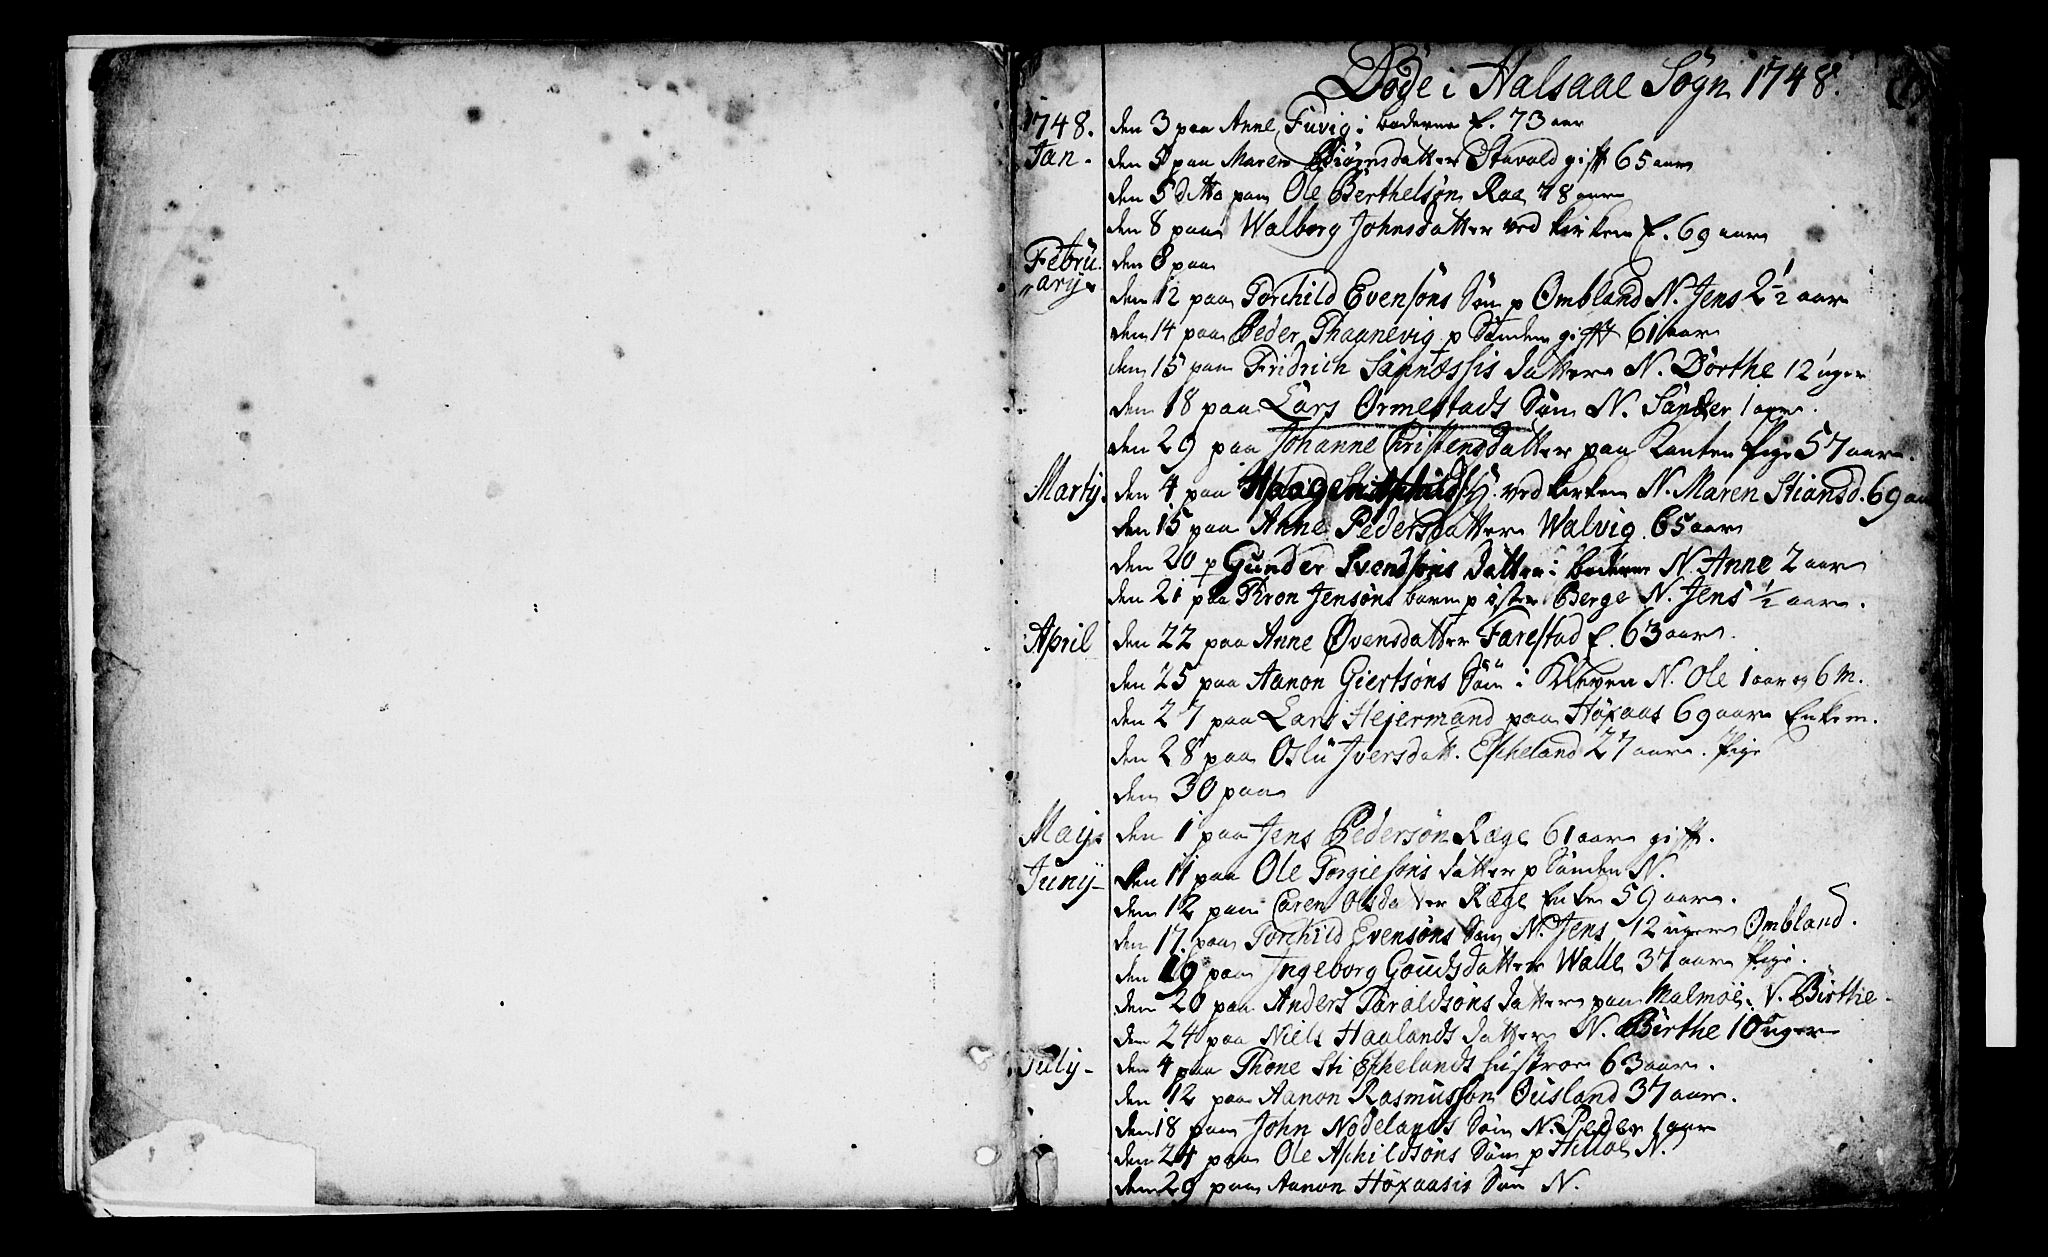 Døde i Halsaae Sogn 1748. (1)
1748. den 3 paa Anne Fuvig i boderne E. 73 aar
Jan. den 5 paa Maren Biørnsdatter Stavold gift 65 aar
den 5 ditto paa Ole Berthelsøn Raae 78 aar
den 8 paa Walborg Johnsdatter ved kirken E. 69 aar
Febru den 8 paa
ary den 12 paa Torchild Evensøns Søn p Ombland N. Jens 2 1/2 aar
den 14 paa Peder Thaanevig p Sanden gift 61 aar
den 15 paa Fridrich datter N. Dorthe 12 uger
den 18 paa Lars Ormestads Søn N. Sander 1 aar.
den 29 paa Johanne Christensdatter paa Kanten Pige 57 aar.
Martij. den 4 paa Haagen ved kirken N. Maren Stiansd. 69 aar
den 15 paa Anne Pedersdatter Walvig 65 aar
den 20 p Gunder Svendsøns datter i boderne N. Anne 2 aar
den 21 paa Tron Jensøns barn p øster Berge N. Jens 1/2 aar.
April den 22 paa Anne Øvensdatter Farestad E. 63 aar.
den 25 paa Aanon Giertsøns Søn i Kleven N. Ole 1 aar og 6 M.
den 27 paa Lars Hejermand paa Høxaas 69 aar Enkem.
den 28 paa Oslu Iversdatt. Escheland 27 aar. Pige
den 30 paa
Maij. den 1 paa Jens Pedersøn Ræge 61 aar gift.
Junij- den 11 paa Ole Torgiesøns datter p Sanden N.
den 12 paa Caren Olsdatter Ræge Enke 59 aar.
den 17. paa Torchild Evensøns Søn N. Jens 12 uger Ombland.
den 19 paa Ingeborg Goudsdatter Walle 37 aar Pige.
den 20 paa Anders Taraldsøns datter paa Malmøe. N. Birthe-
den 24 paa Niels Haalands datter N. Birthe 10 uger
Julij- den 4 paa Thone Sti Eschelands hustroe 63 aar.
den 12 paa Aanon Rasmussøn Ousland 37 aar.
den 18 paa John Nodelands Søn N. Peder 1 aar
den 24 paa Ole Aschildsøns Søn p Hilloe N.
den 29 paa Aanon Høxaasis Søn N.